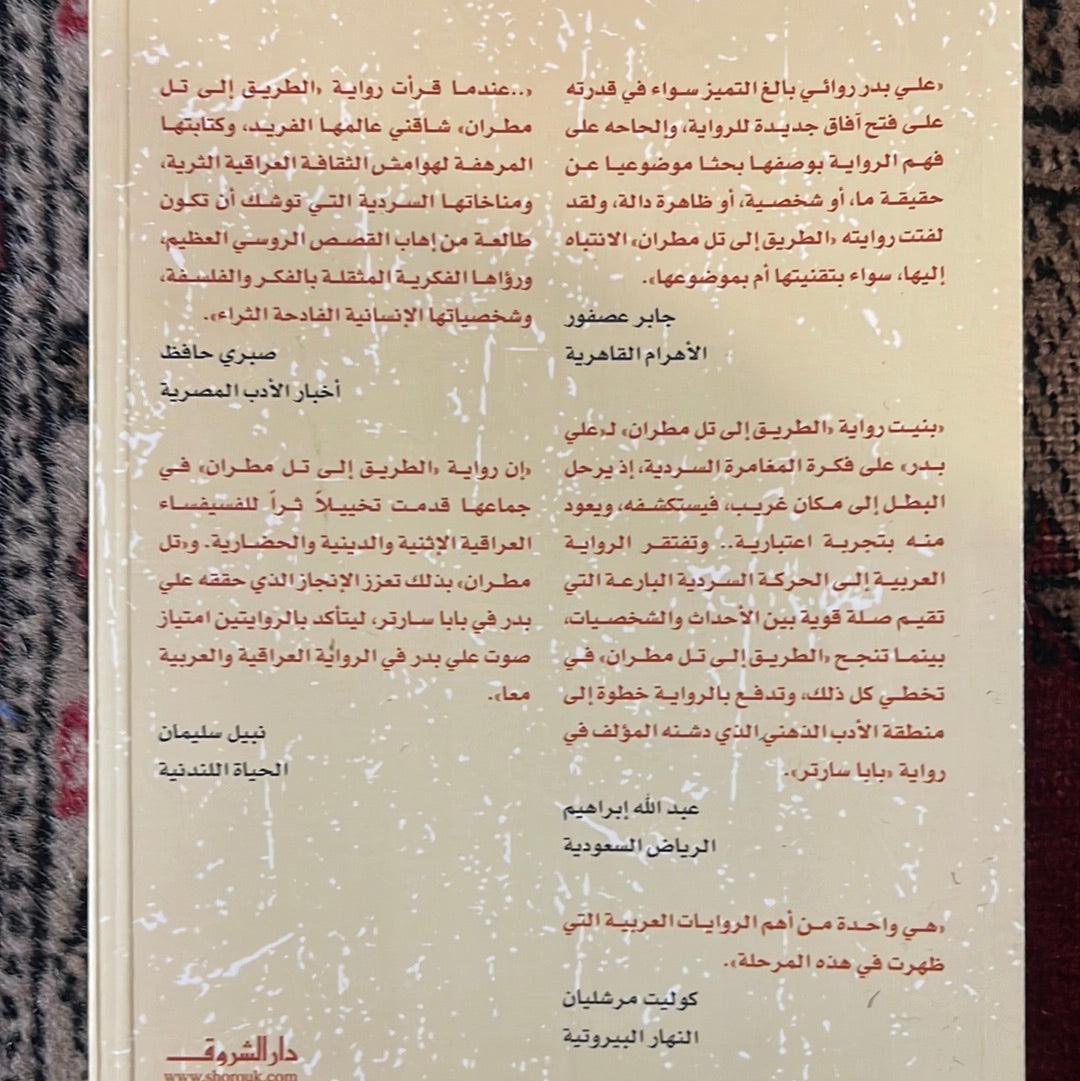 «علي بدر روائي بالغ التميز سواء في قدرته
على فتح آفاق جديدة للرواية، والحاحه على
فهم الرواية بوصفها بحثا موضوعيا عن
حقيقة ما، أو شخصية، أو ظاهرة دالة، ولقد
لفتت روايته «الطريق إلى تل مطران» الانتباه
إليها، سواء بتقنيتها أم بموضوعها».
جابر عصفور
الأهرام القاهرية
«بنيت رواية «الطريق إلى تل مطران» لـ«علي
بدر» على فكرة المغامرة السردية، إذ يرحل
البطل إلى مكان غريب، فيستكشفه، ويعود
منه بتجربة اعتبارية.. وتفتقر الرواية
العربية إلى الحركة السردية البارعة التي
تقيم صلة قوية بين الأحداث والشخصيات،
بينما تنجح «الطريق إلى تل مطران» في
تخطي كل ذلك، وتدفع بالرواية خطوة إلى
منطقة الأدب الذهني الذي دشنه المؤلف في
رواية «بابا سارتر».
عبد الله إبراهيم
الرياض السعودية
«هي واحدة من أهم الروايات العربية التي
ظهرت في هذه المرحلة».
كوليت مرشليان
النهار البيروتية
«..عندما قرأت رواية «الطريق إلى تل
مطران» شاقني عالمها الفريد، وكتابتها
المرهفة لهوامش الثقافة العراقية الثرية،
ومناخاتها السردية التي توشك أن تكون
طالعة من إهاب القصص الروسي العظيم،
ورؤاها الفكرية المثقلة بالفكر والفلسفة،
وشخصياتها الإنسانية الفادحة الثراء».
صبري حافظ
أخبار الأدب المصرية
«إن رواية «الطريق إلى تل مطران» في
جماعها قدمت تخييلاً ثراً للفسيفساء
العراقية الإثنية والدينية والحضارية. و«تل
مطران» بذلك تعزز الإنجاز الذي حققه علي
بدر في بابا سارتر، ليتأكد بالروايتين امتياز
صوت علي بدر في الرواية العراقية والعربية
معا».
نبيل سليمان
الحياة اللندنية
دار الشروق
www.shorouk.com